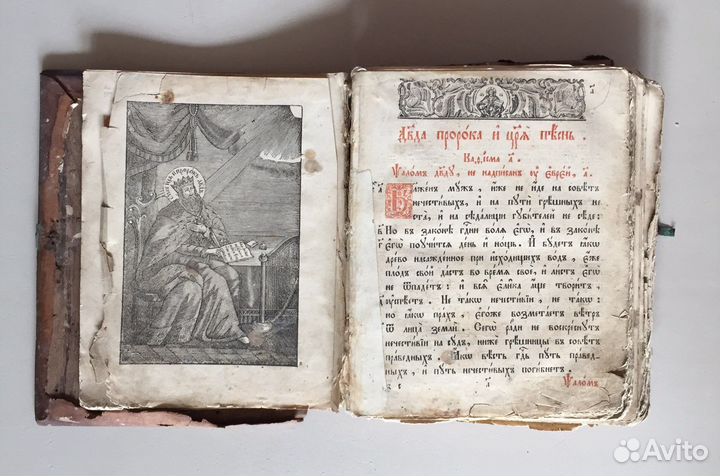 Дв҃да проро́ка и҆ цр҃ѧ̀ пѣ́снь .
Каѳі́сма а҃ .
Ѱало́мъ дв҃дꙋ , не надпи́санъ ᲂу҆ є҆врє́й , а҃ .
Бл҃же́нъ мꙋ́жъ , и҆́же не и҆́де на совѣ́тъ
нечести́выхъ , и҆ на пꙋтѝ грѣ́шныхъ не
ста̀ , и҆ на сѣда́лищи гꙋби́телей не сѣ́де :
Но въ зако́нѣ гд҃ни во́лѧ є҆гѡ̀ , и҆ въ зако́нѣ
є҆гѡ̀ поꙋчи́тсѧ де́нь и҆ но́щь . И҆ бꙋ́детъ ꙗ҆́кѡ
дре́во насажде́нное при и҆схо́дищихъ во́дъ , є҆́же
пло́дъ сво́й да́стъ во вре́мѧ своѐ , и҆ ли́стъ є҆гѡ̀
не ѿпаде́тъ . И҆ всѧ̑ є҆ли̑ка а҆́ще твори́тъ ,
ᲂу҆спѣ́етъ . Не та́кѡ нечести́вїи , не та́кѡ :
но ꙗ҆́кѡ пра́хъ , є҆го́же возмета́етъ вѣ́тръ
ѿ лица̀ землѝ . Сегѡ̀ ра́ди не воскре́снꙋтъ
нечести́вїи на сꙋ́дъ , нижѐ грѣ̑шницы въ совѣ́тъ
пра́ведныхъ . Ꙗ҆́кѡ вѣ́сть гд҃ь пꙋ́ть пра́вед-
ныхъ , и҆ пꙋ́ть нечести́выхъ поги́бнетъ .
Ѱало́мъ
Avito